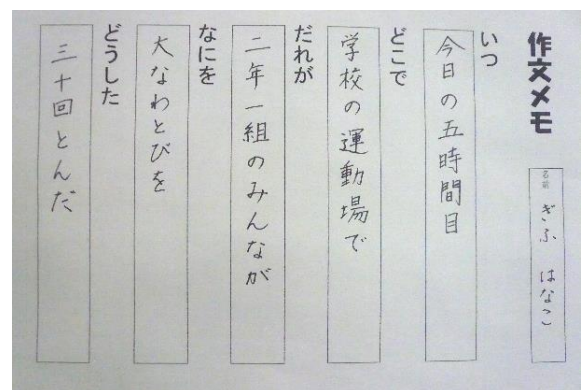 作文メモ
名前 ぎふ はなこ
いつ
今日の五時間目
どこで
学校の運動場で
だれが
二年一組のみんなが
なにを
大なわとびを
どうした
三十回とんだ